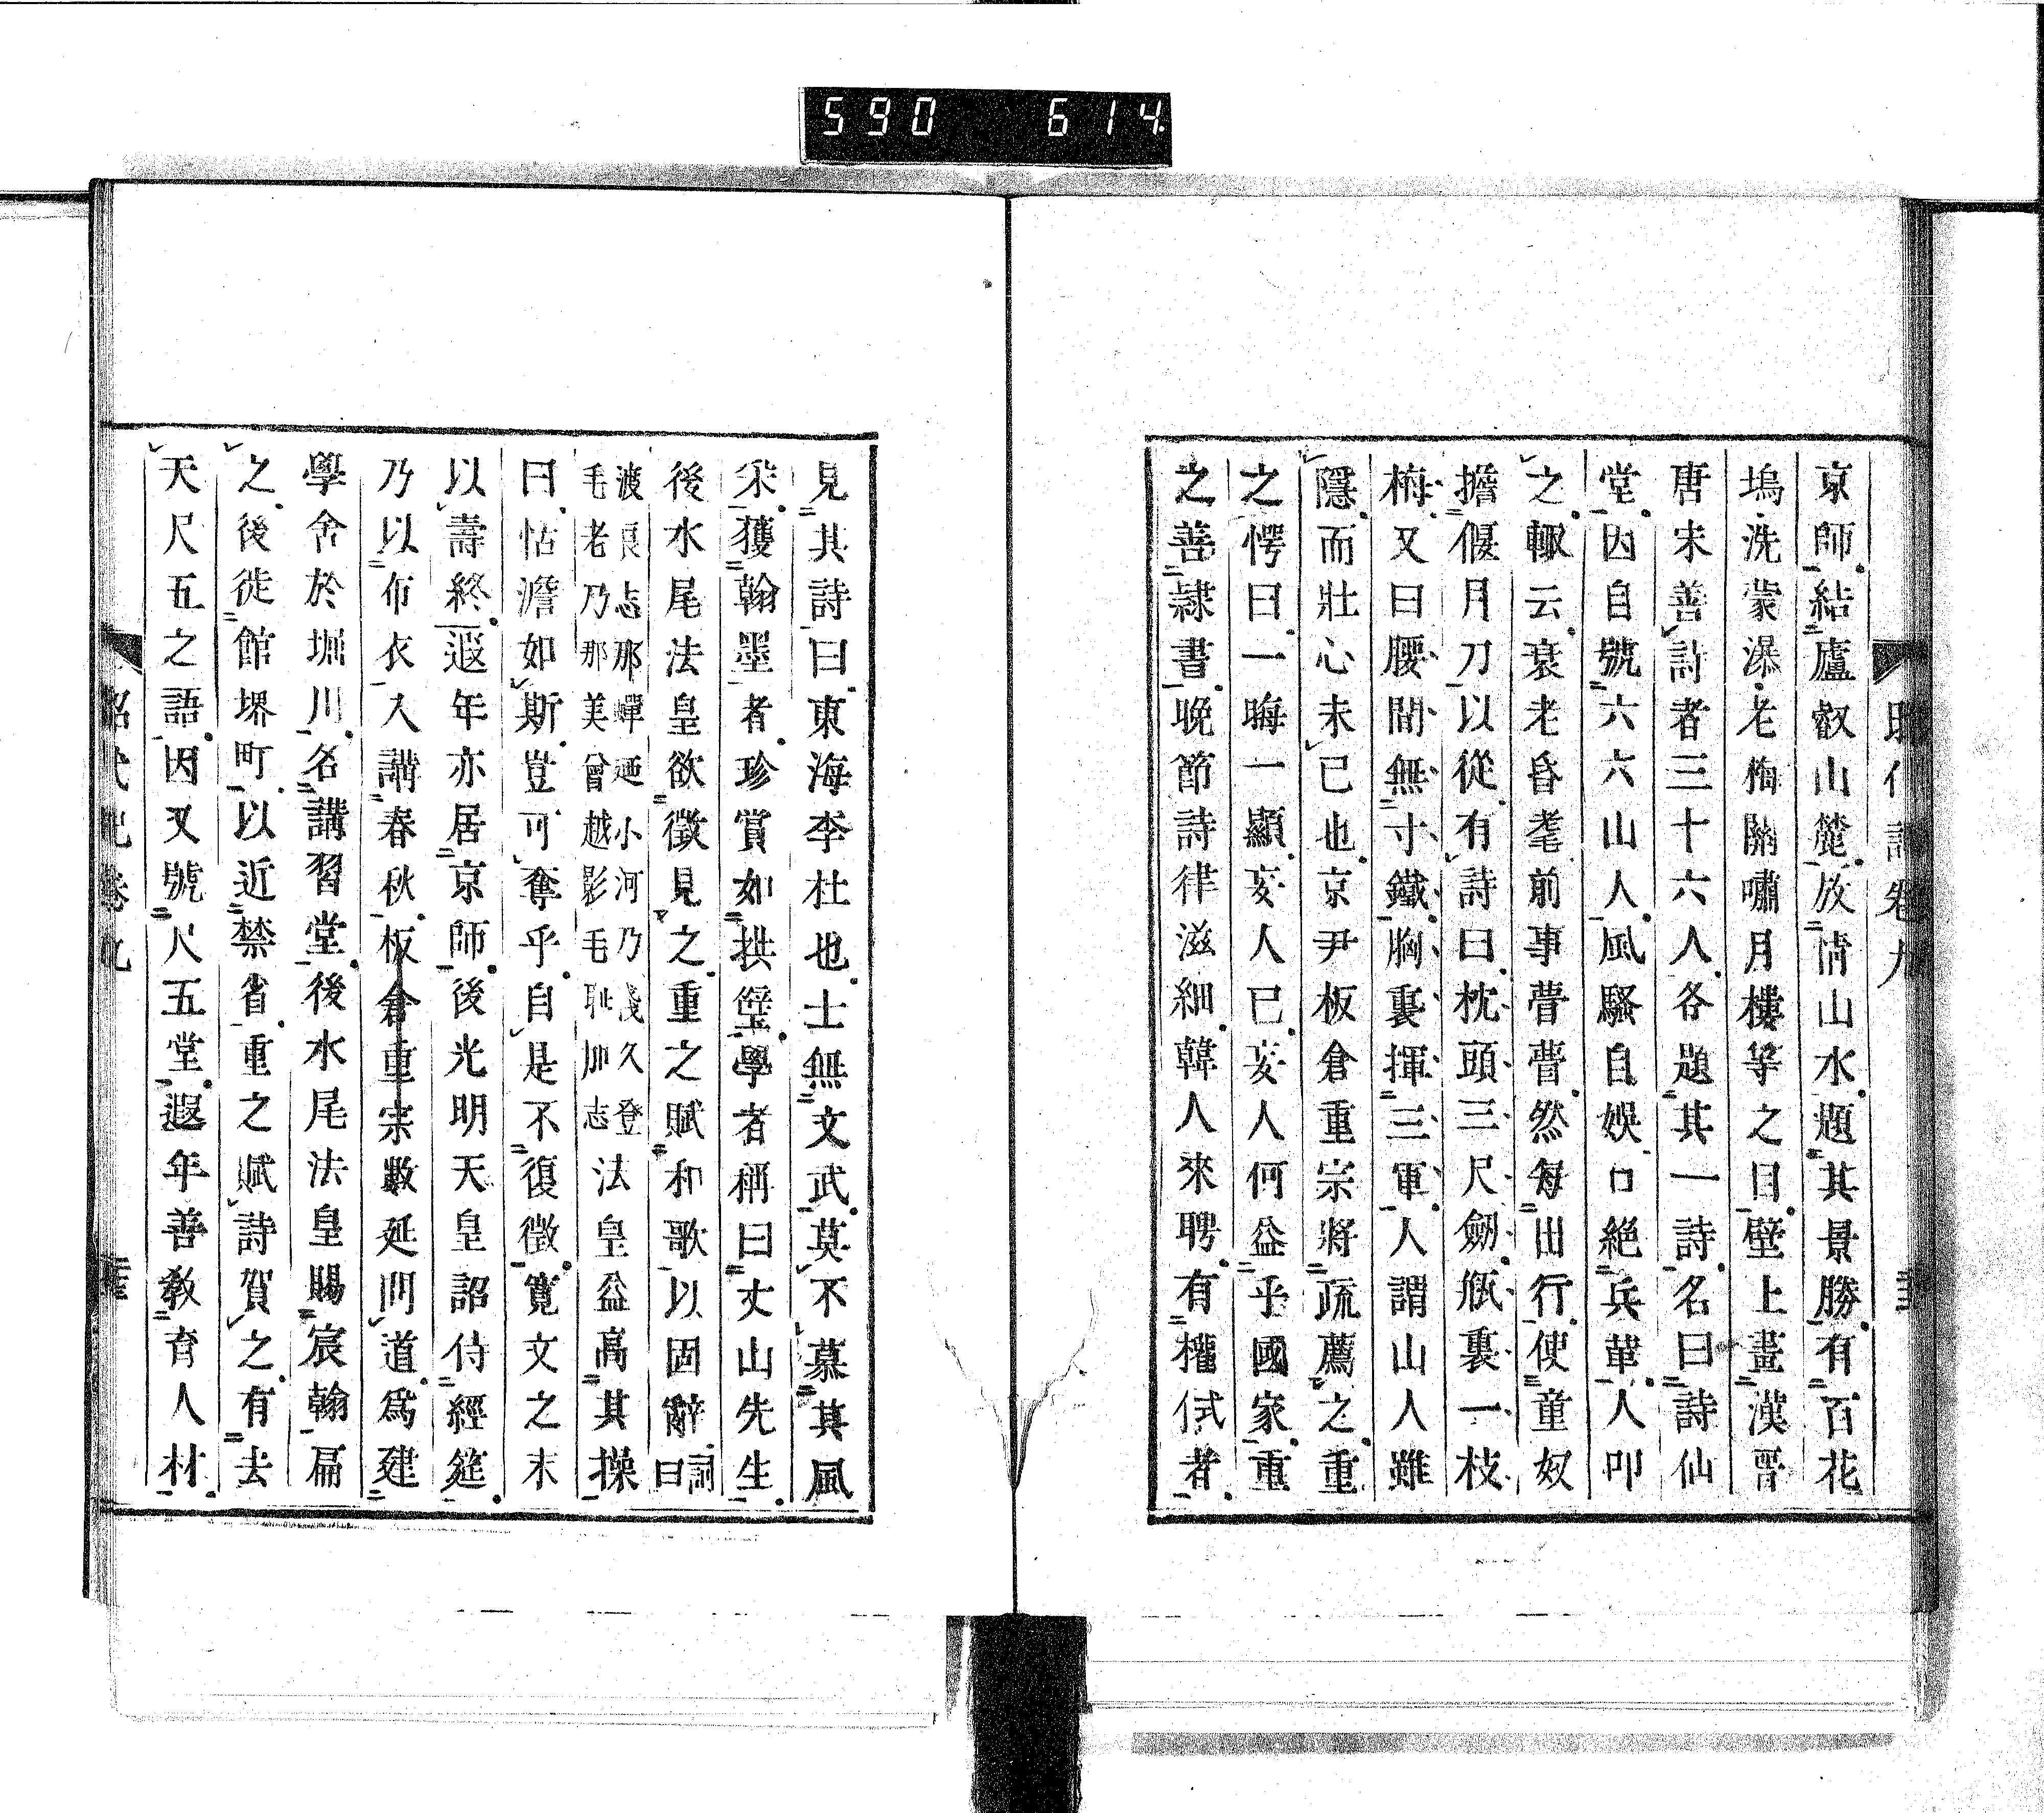 590 614
京師結廬叡山麓放情山水題其景勝有百花
塢洗蒙瀑老梅關嘯月樓等之目壁上畫漢晉
唐宋善詩者三十六人各題其一詩名曰詩仙
堂因自號六六山人風騷自娛口絕兵革人叩
之輙云衰老昏耄前事瞢瞢然每出行使童奴
擔偃月刀以從有詩曰枕頭三尺劒瓶裏一枝
梅又曰腰間無寸鐵胸裏揮三軍人謂山人雖
隱而壯心未已也京尹板倉重宗將疏薦之重
之愕曰一晦一顯妄人已妄人何益乎國家重
之善隷書晚節詩律滋細韓人來聘有權侙者
見其詩曰東海李杜也士無文武莫不慕其風
釆獲翰墨者珍賞如拱璧學者稱曰丈山先生
後水尾法皇欲徵見之重之賦和歌以固辭詞曰
渡良志那蟬廼小河乃淺久登
毛老乃那美曾越影毛耻加志法皇益高其操
曰恬澹如斯豈可奪乎自是不復徵寬文之末
以壽終遐年亦居京師後光明天皇詔侍經筵
乃以布衣入講春秋板倉重宗數延問道爲建
學舍於堀川名講習堂後水尾法皇賜宸翰扁
之後徙館堺町以近禁省重之賦詩賀之有去
天尺五之語因又號尺五堂遐年善教育人材